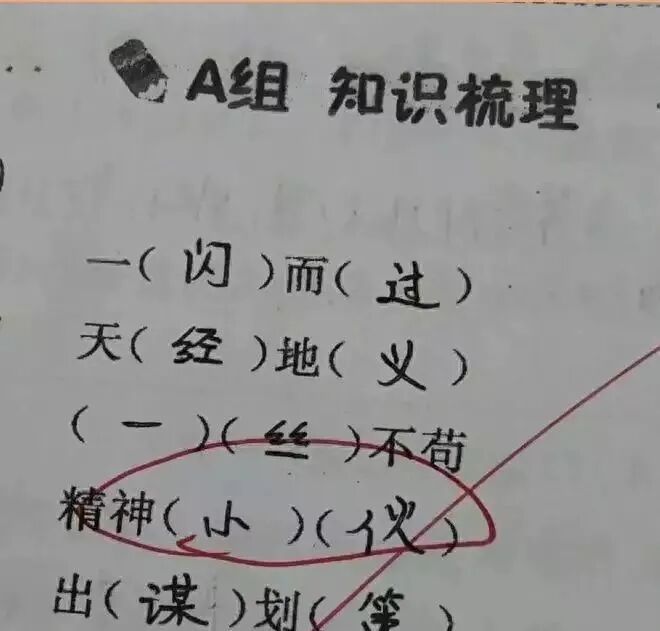 A组 知识梳理
一( 闪 )而( 过 )
天( 经 )地( 义 )
( 一 )( 丝 )不苟
精神( 小 )( 伙 )
出( 谋 )划( 策 )